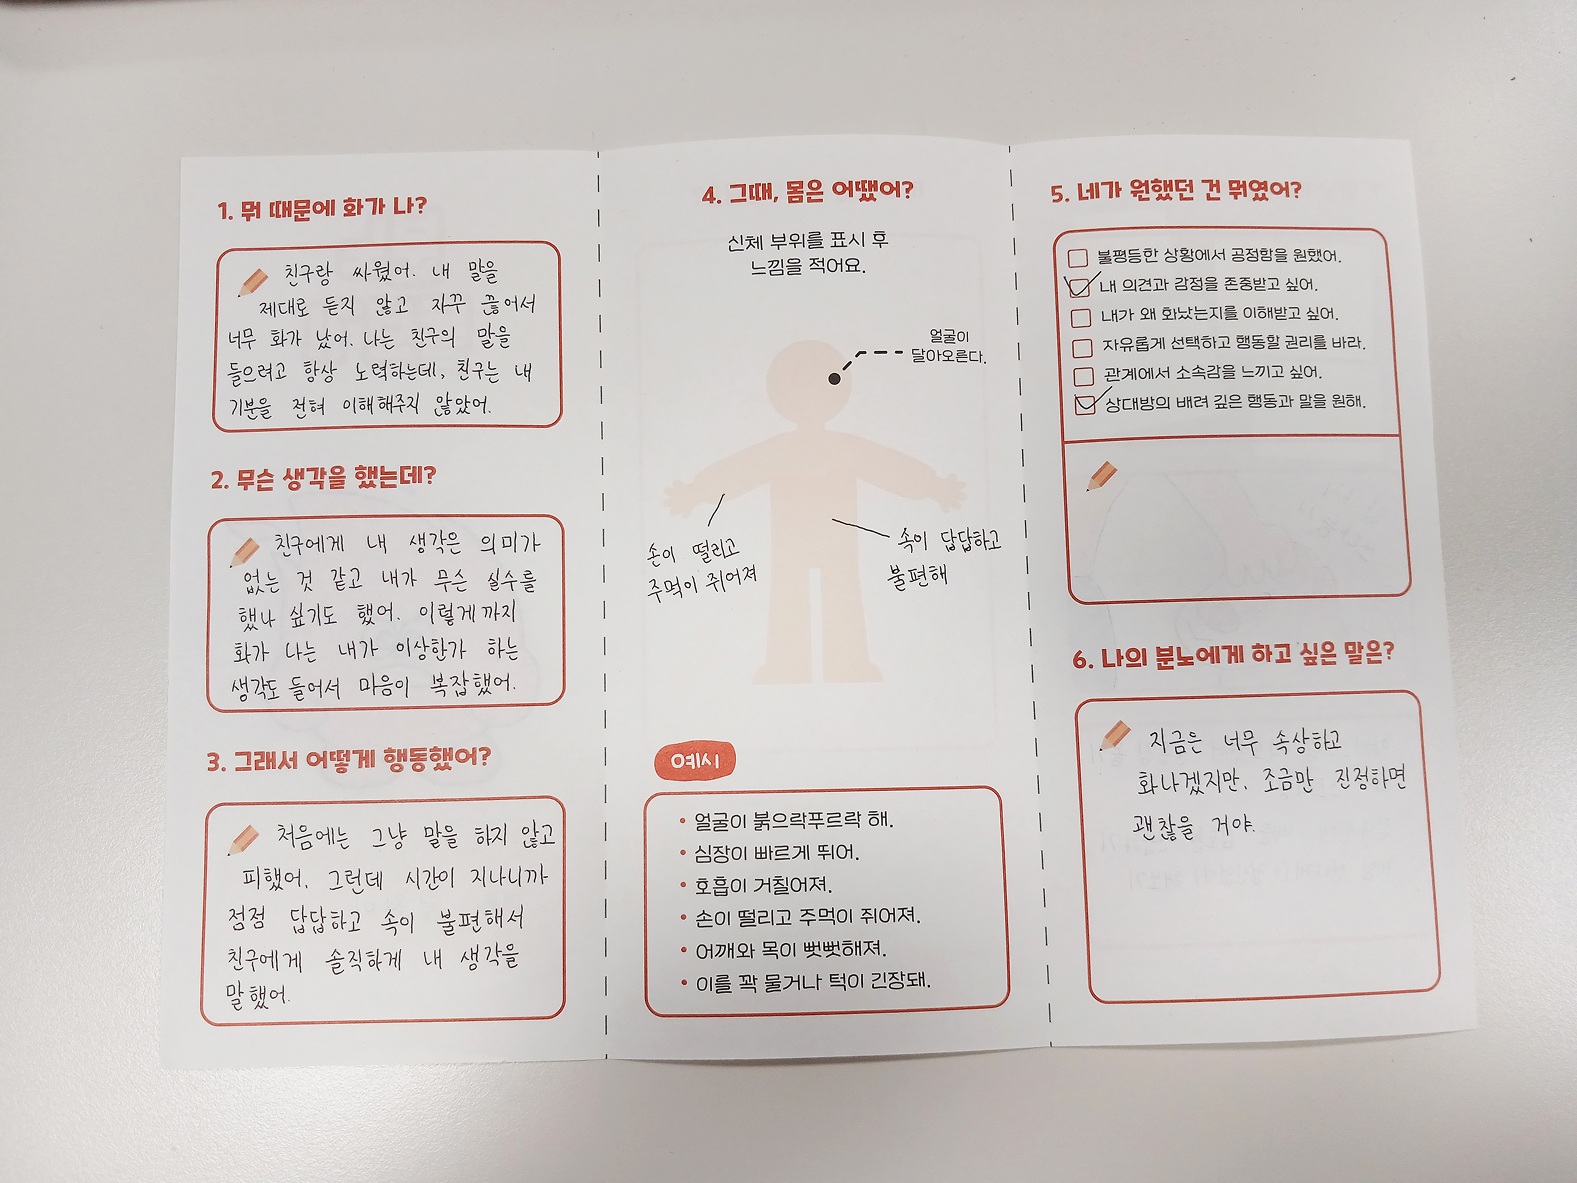 1. 뭐 때문에 화가 나?
친구랑 싸웠어. 내 말을
제대로 듣지 않고 자꾸 끊어서
너무 화가 났어. 나는 친구의 말을
들으려고 항상 노력하는데, 친구는 내
기분을 전혀 이해해주지 않았어.
2. 무슨 생각을 했는데?
친구에게 내 생각은 의미가
없는 것 같고 내가 무슨 실수를
했나 싶기도 했어. 이렇게까지
화가 나는 내가 이상한가 하는
생각도 들어서 마음이 복잡했어.
3. 그래서 어떻게 행동했어?
처음에는 그냥 말을 하지 않고
피했어. 그런데 시간이 지나니까
점점 답답하고 속이 불편해서
친구에게 솔직하게 내 생각을
말했어.
4. 그때, 몸은 어땠어?
신체 부위를 표시 후
느낌을 적어요.
얼굴이
달아오른다.
손이 떨리고
주먹이 쥐어져
속이 답답하고
불편해
예시
• 얼굴이 붉으락푸르락 해.
• 심장이 빠르게 뛰어.
• 호흡이 거칠어져.
• 손이 떨리고 주먹이 쥐어져.
• 어깨와 목이 뻣뻣해져.
• 이를 꽉 물거나 턱이 긴장돼.
5. 네가 원했던 건 뭐였어?
불평등한 상황에서 공정함을 원했어.
내 의견과 감정을 존중받고 싶어.
내가 왜 화났는지를 이해받고 싶어.
자유롭게 선택하고 행동할 권리를 바라.
관계에서 소속감을 느끼고 싶어.
상대방의 배려 깊은 행동과 말을 원해.
6. 나의 분노에게 하고 싶은 말은?
지금은 너무 속상하고
화나겠지만, 조금만 진정하면
괜찮을 거야.